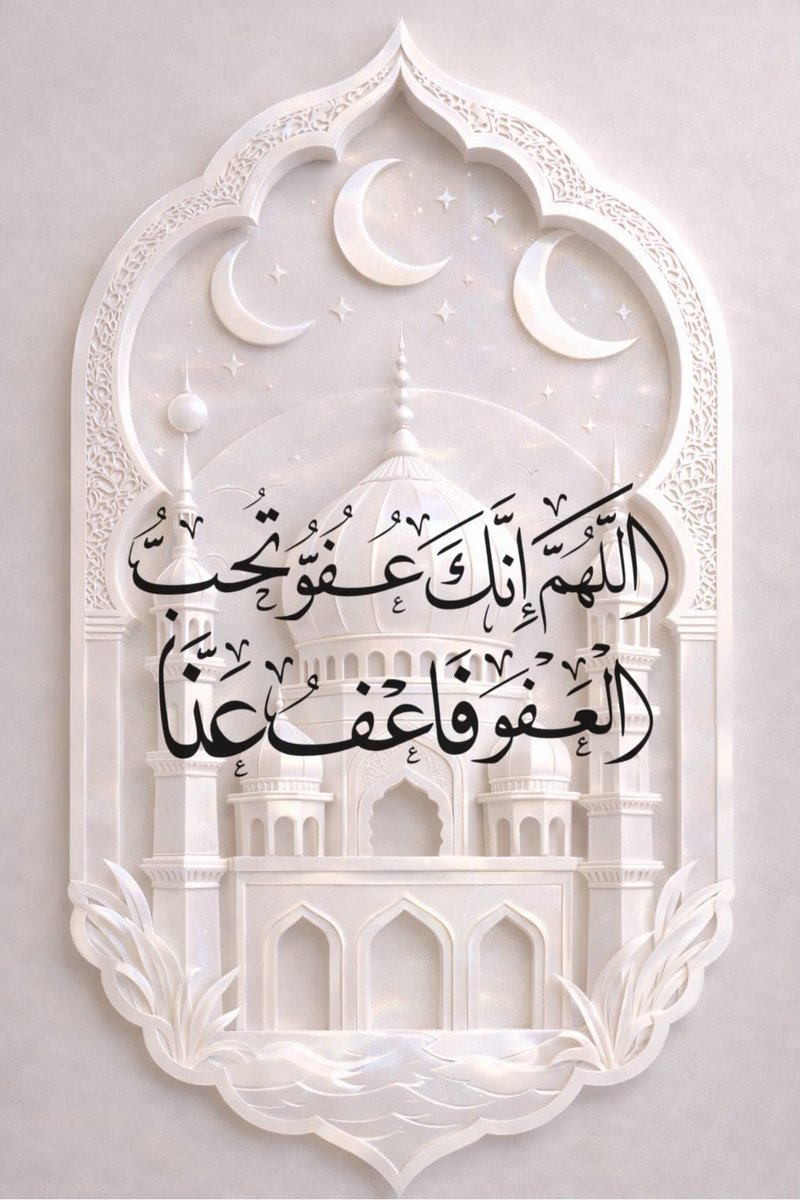 اللَّهُمَّ إِنَّكَ عُفُوٌّ تُحِبُّ
الْعَفْوَ فَاعْفُ عَنَّا